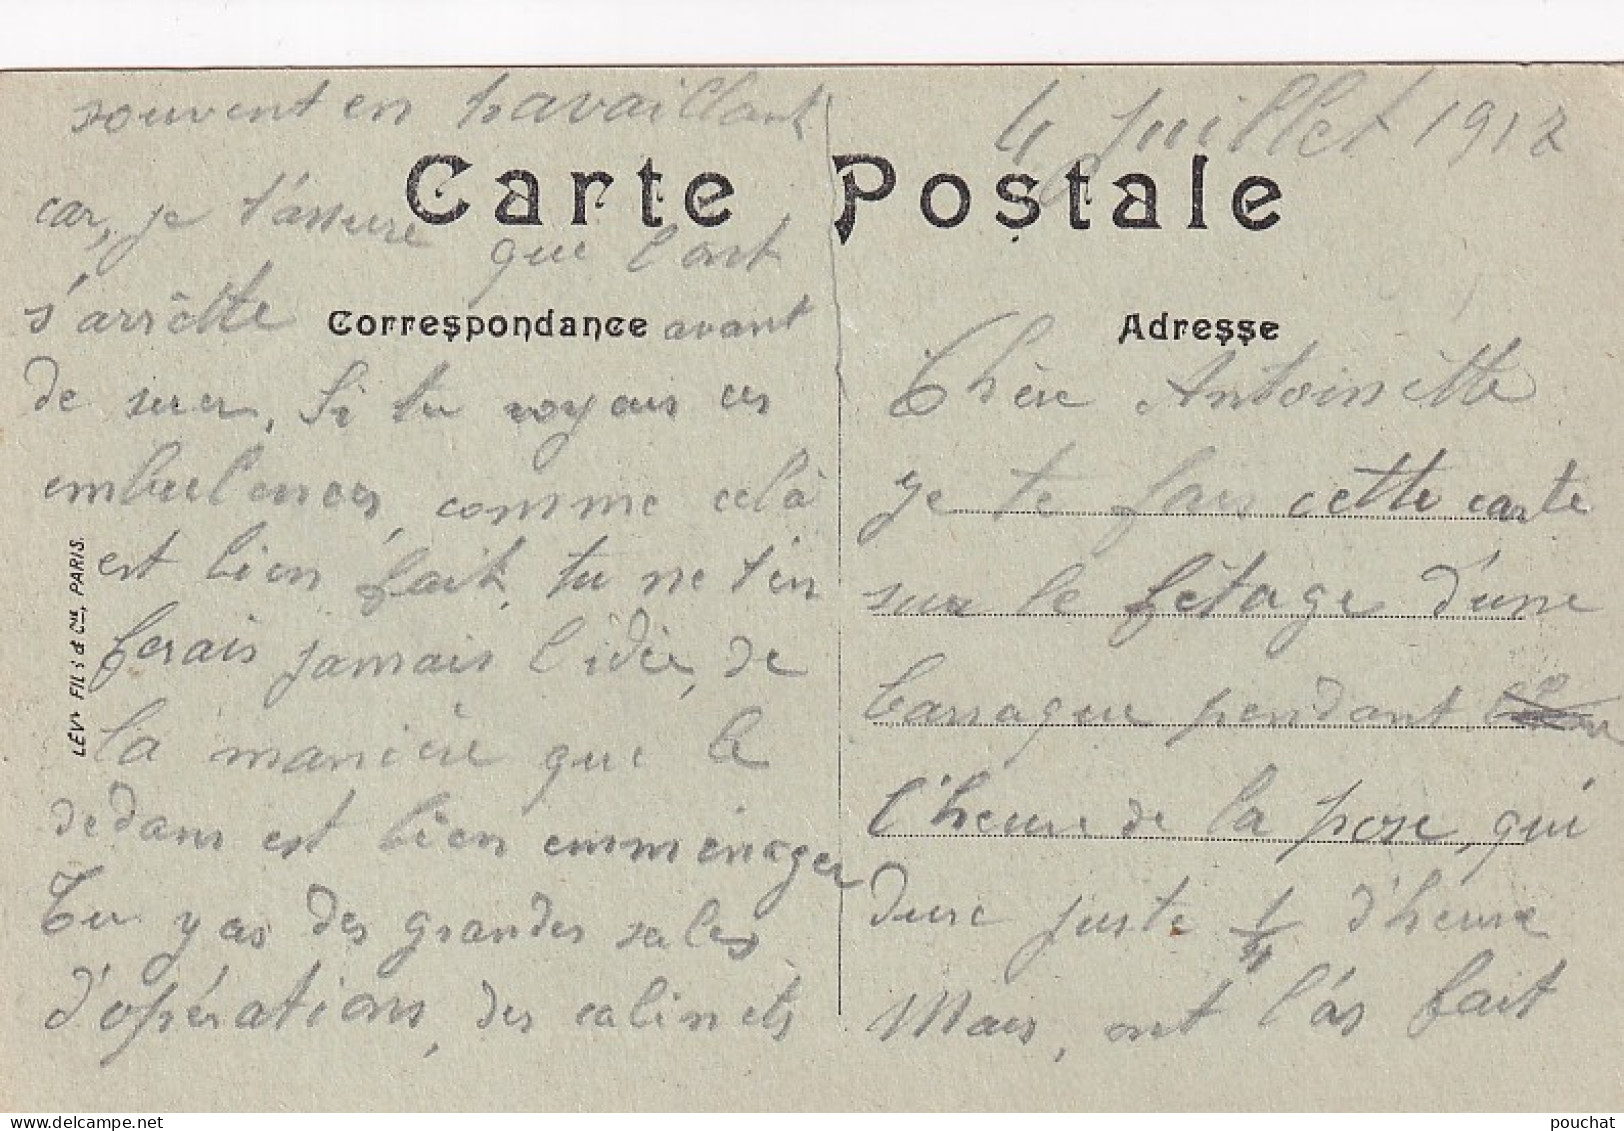 4 juillet 1912
Carte Postale
Correspondance
Adresse
Chère Antoinètte
je te fais cette carte
sur le fêtage d'une
barraque pendant
l'heure de la pose, qui
dure juste 1/4 d'heure
Mais, ont l'as fait
souvent en travaillant
car, je t'assure que l'ont
s'arrêtte avant
de suer. Si tu voyais ces
embulences, comme celà
est bien fait, tu ne t'en
ferais jamais l'idée, de
la manière que le
dedans est bien emménager
Tu y as des grandes sales
d'opérations, des cabinets
LÉVY FILS & Cie, PARIS.
pouchat